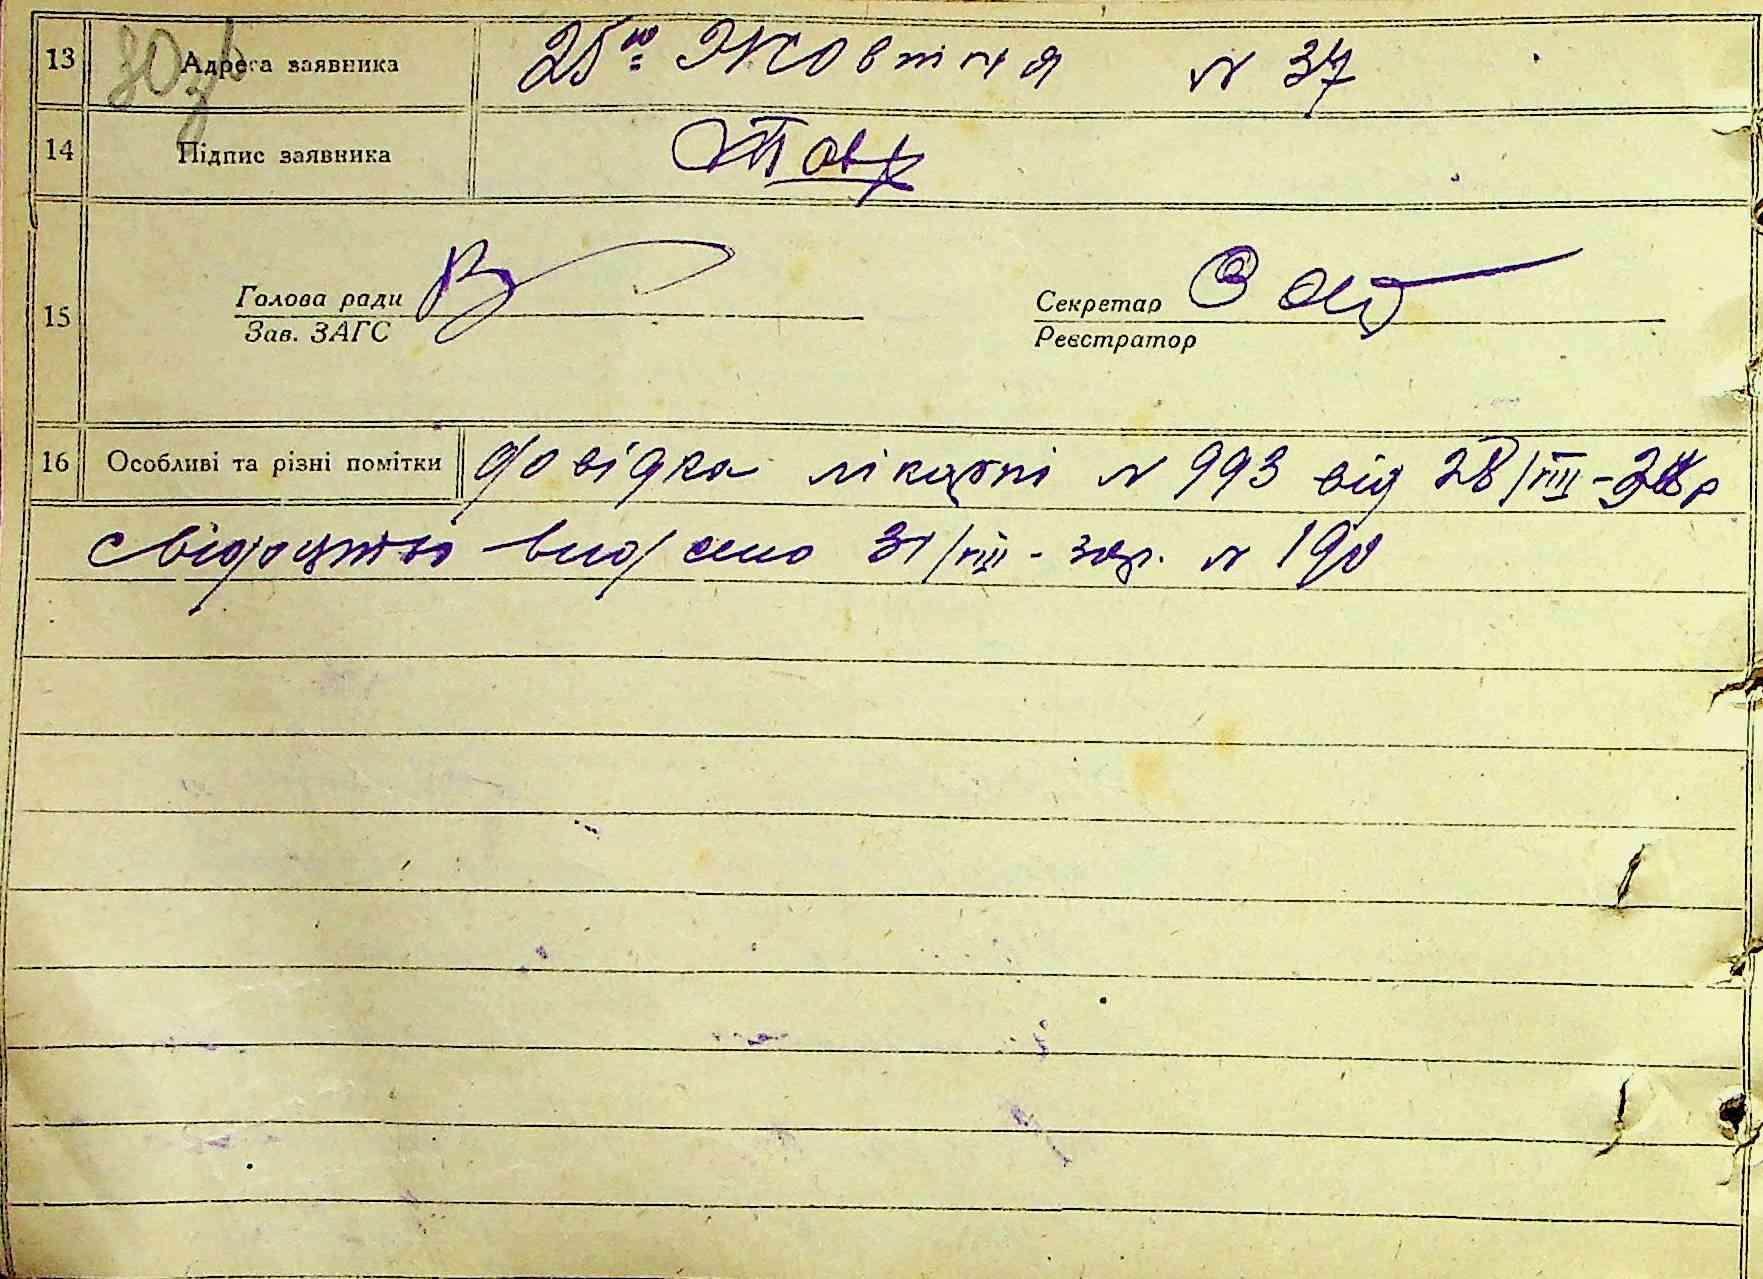 13 Адреса заявника 25го Жовтня N 37
14 Підпис заявника
15 Голова ради Секретар
Зав. ЗАГС Реєстратор
16 Особливі та різні помітки довідка лікарні N 993 від 28/VIII-
свідоцтво видано 31/VIII- N 190